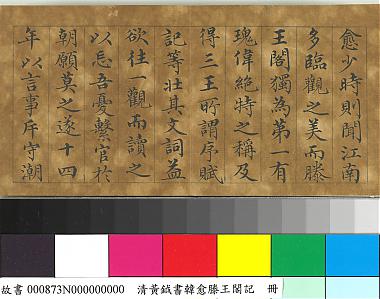 愈少時則聞江南
多臨觀之美而滕
王閣獨為第一有
瑰偉絶特之稱及
得三王所謂序賦
記等壯其文詞益
欲往一觀而讀之
以忘吾憂繫官於
朝願莫之遂十四
年以言事斥守潮
故書 000873N000000000 清黃鉞書韓愈滕王閣記 冊